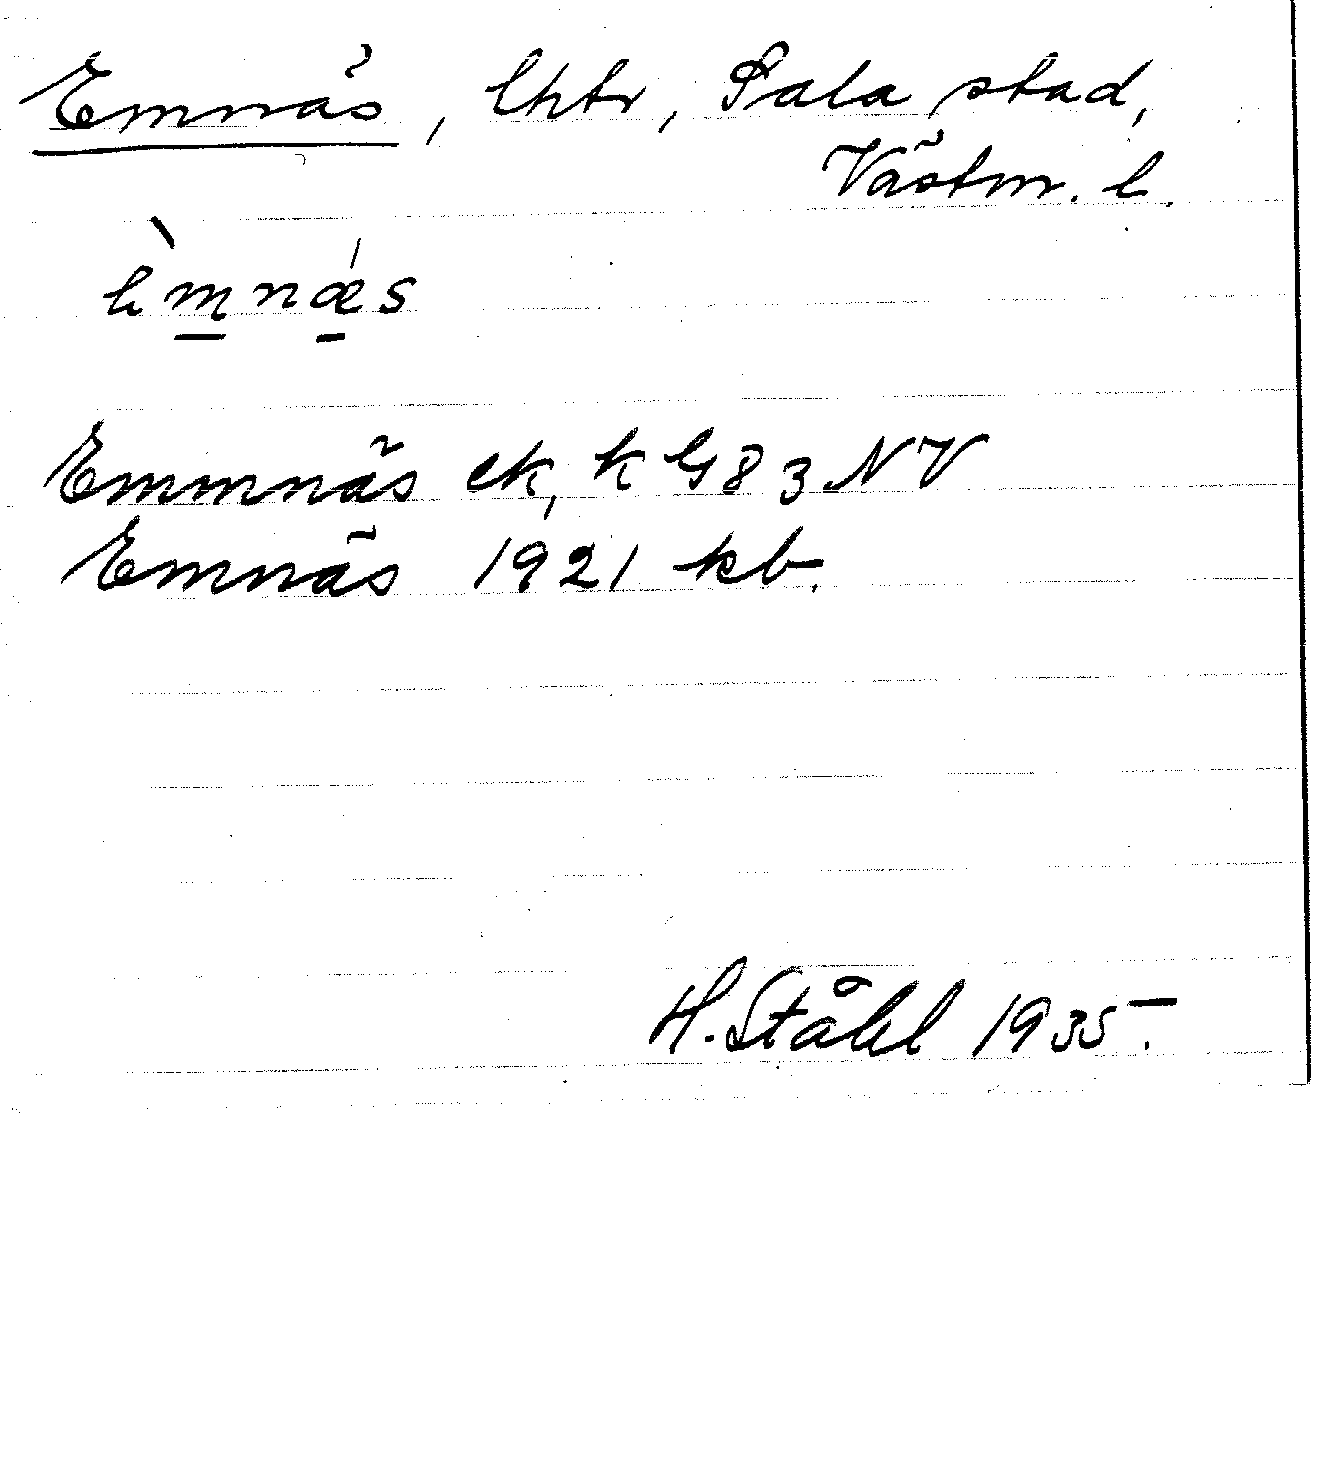 Emnäs, lht, Sala stad,
Västm. l.
èm̲nǽ̲s
Emmnäs ek, k G 83 NV
Emnäs 1921 kb.
H. Ståhl 1935.